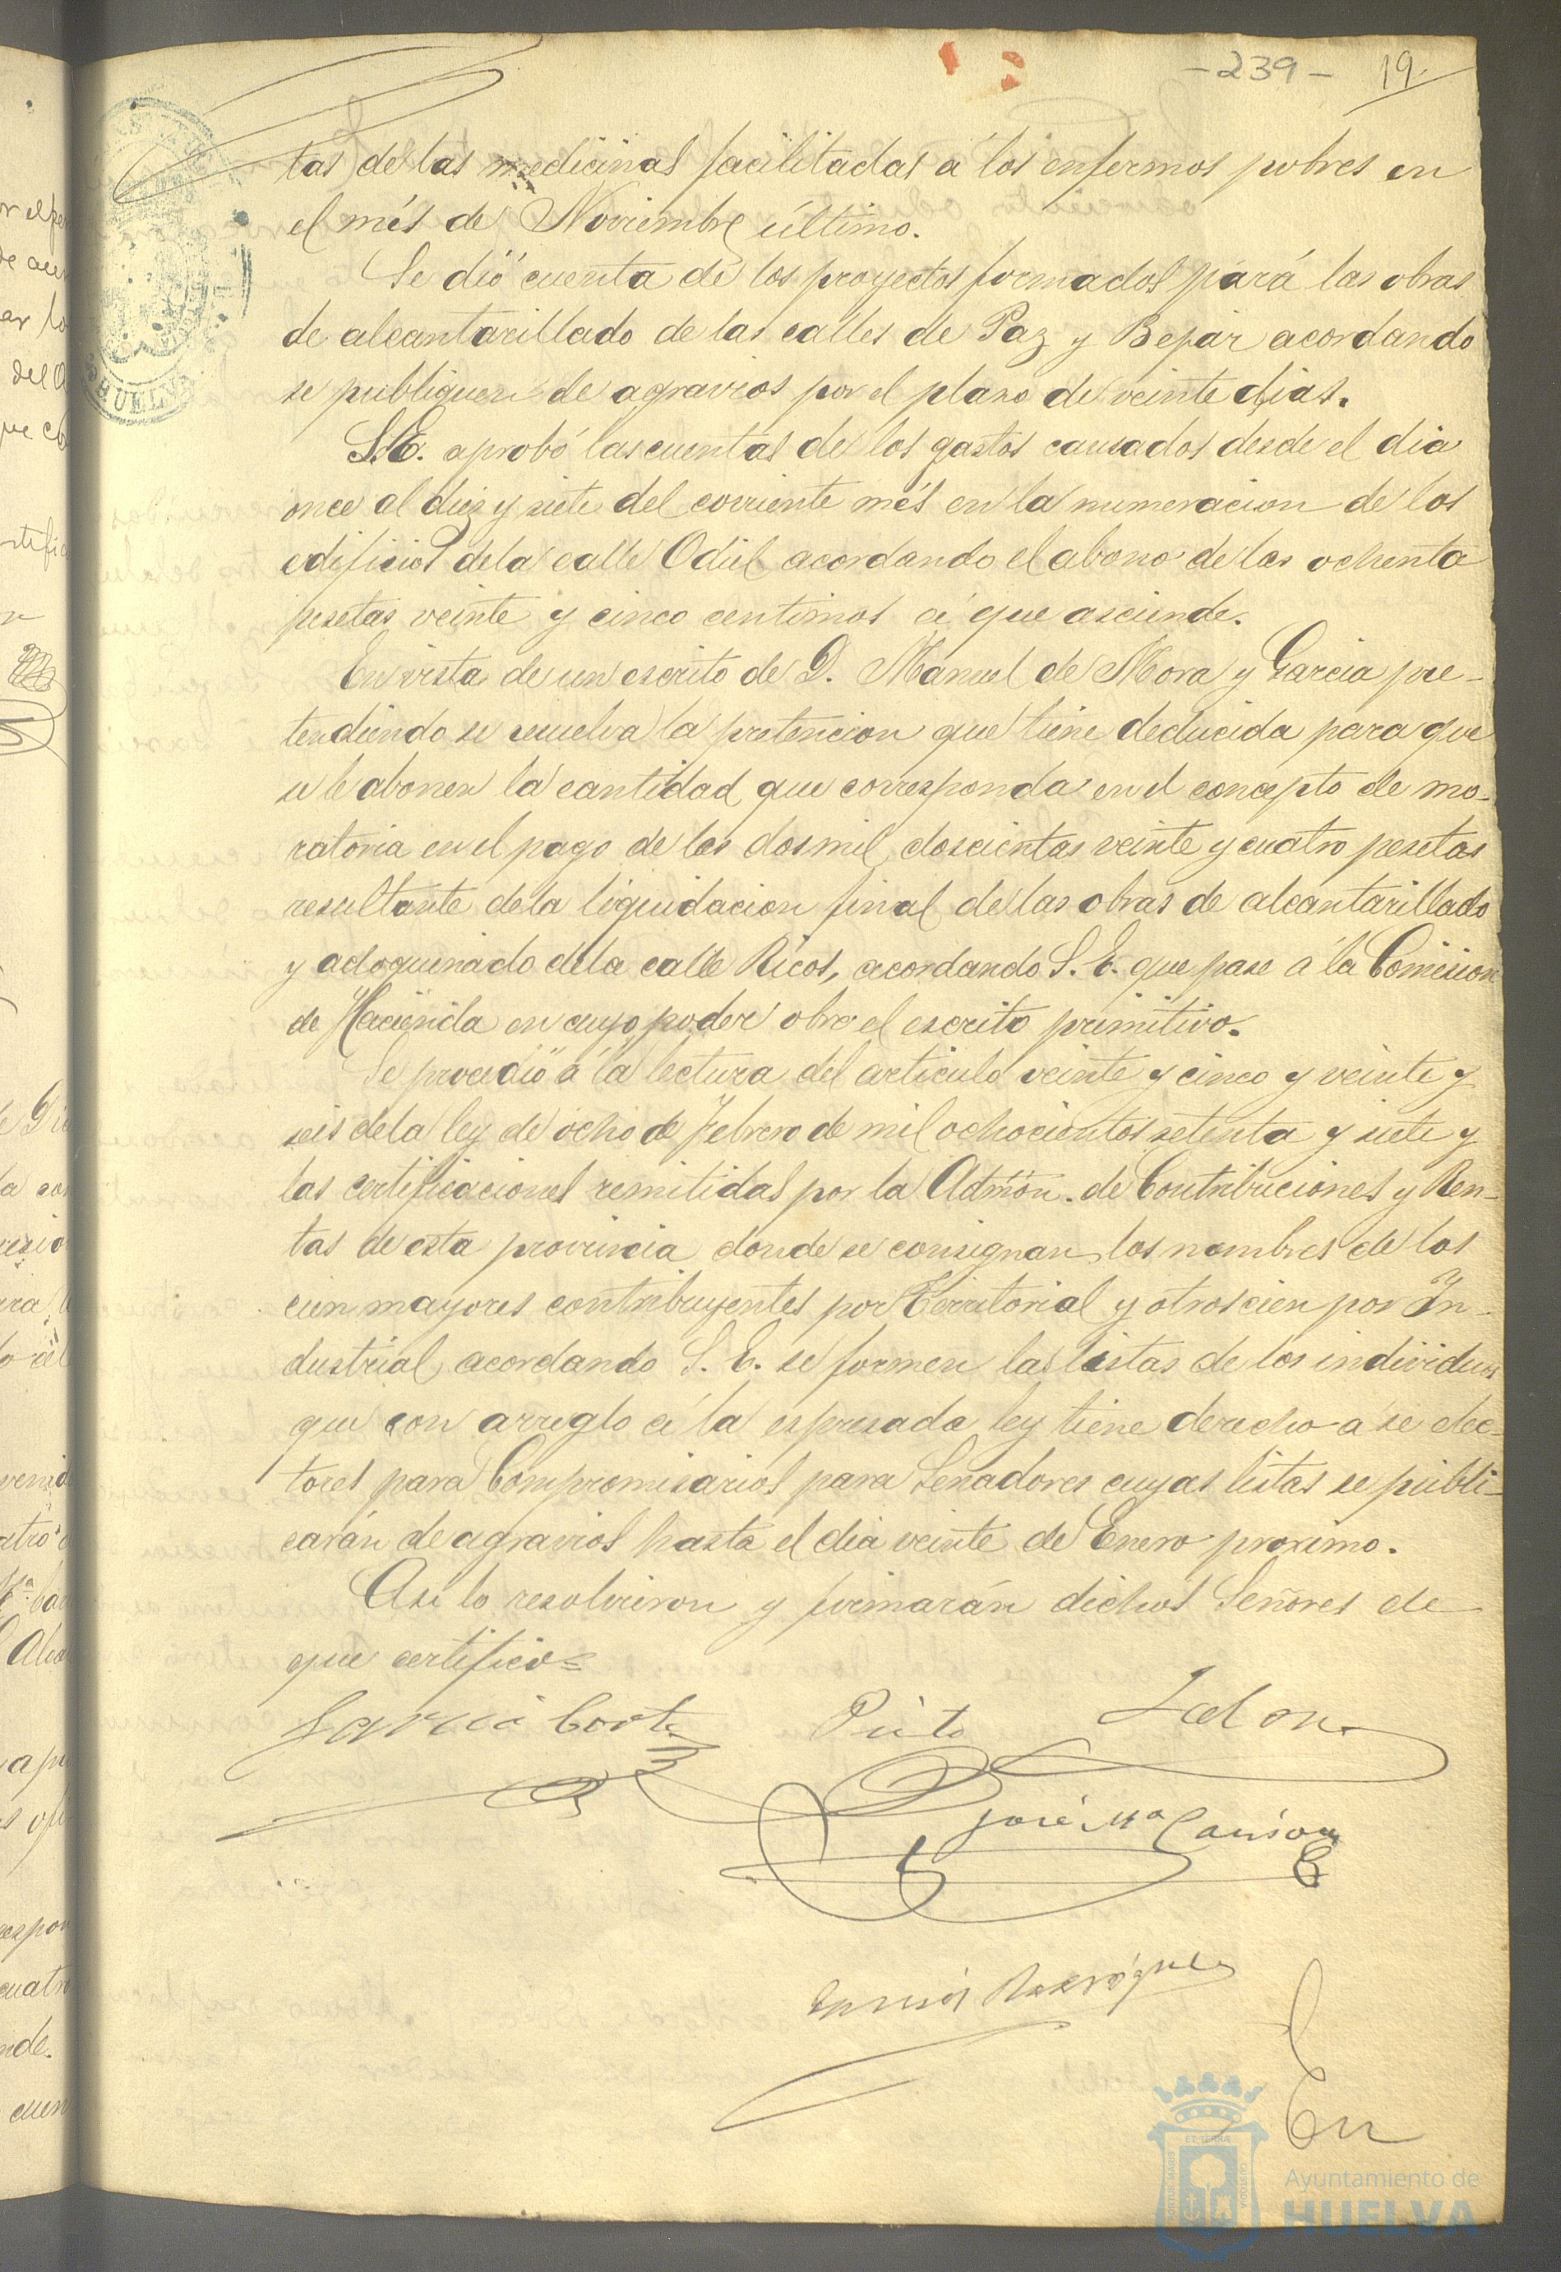 -239- 19.
tas de las medicinas facilitadas á los enfermos pobres en
el més de Noviembre último.
Se dió cuenta de los proyectos formados pará las obras
de alcantarillado de las calles de Paz y Bejar acordando
se publiquen de agravios por el plazo de veinte dias.
S.E. aprobó las cuentas de los gastos causados desde el dia
once al diez y siete del corriente més en la numeracion de los
edificios de la calle Odiel acordando el abono de las ochenta
pesetas veinte y cinco centimos á que asciende.
En vista de un escrito de D. Manuel de Mora y Garcia pre-
tendiendo se resuelva la pretencion que tiene deducida para que
se le abonen la cantidad que corresponda en el concepto de mo-
ratoria en el pago de las dos mil doscientas veinte y cuatro pesetas
resultante de la liquidacion final de las obras de alcantarillado
y adoquinado de la calle Ricos, acordando S. E. que pase á la Comision
de Hacienda en cuyo poder obra el escrito primitivo.
Se procedió á la lectura del articulo veinte y cinco y veinte y
seis de la ley de ocho de Febrero de mil ochocientos setenta y siete y
las certificaciones remitidas por la Admon. de Contribuciones y Ren-
tas de esta provincia donde se consignan los nombres de los
cien mayores contribuyentes por Territorial y otros cien por In-
dustrial, acordando S. E. se formen las listas de los individuos
que con arreglo á la espresada ley tiene derecho a se elec-
tores para Compromisarios para Senadores cuyas listas se publi-
carán de agravios hasta el dia veinte de Enero proximo.
Asi lo resolvieron y firmarán dichos Señores de
que certifico=
Garcia Cortes Pinto Jalon
José Mª
Rodríguez
En
HUELVA
ET TERRÆ
PORTUS MARIS
CUSTODIA
Ayuntamiento de
HUELVA